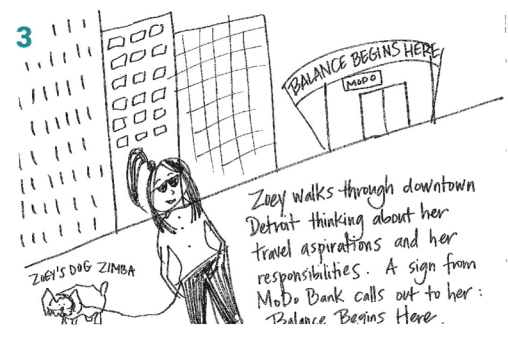 3
BALANCE BEGINS HERE
MODO
Zoey walks through downtown
Detroit thinking about her
travel aspirations and her
responsibilities. A sign from
MoDo Bank calls out to her:
Balance Begins Here.
ZOEY'S DOG ZIMBA